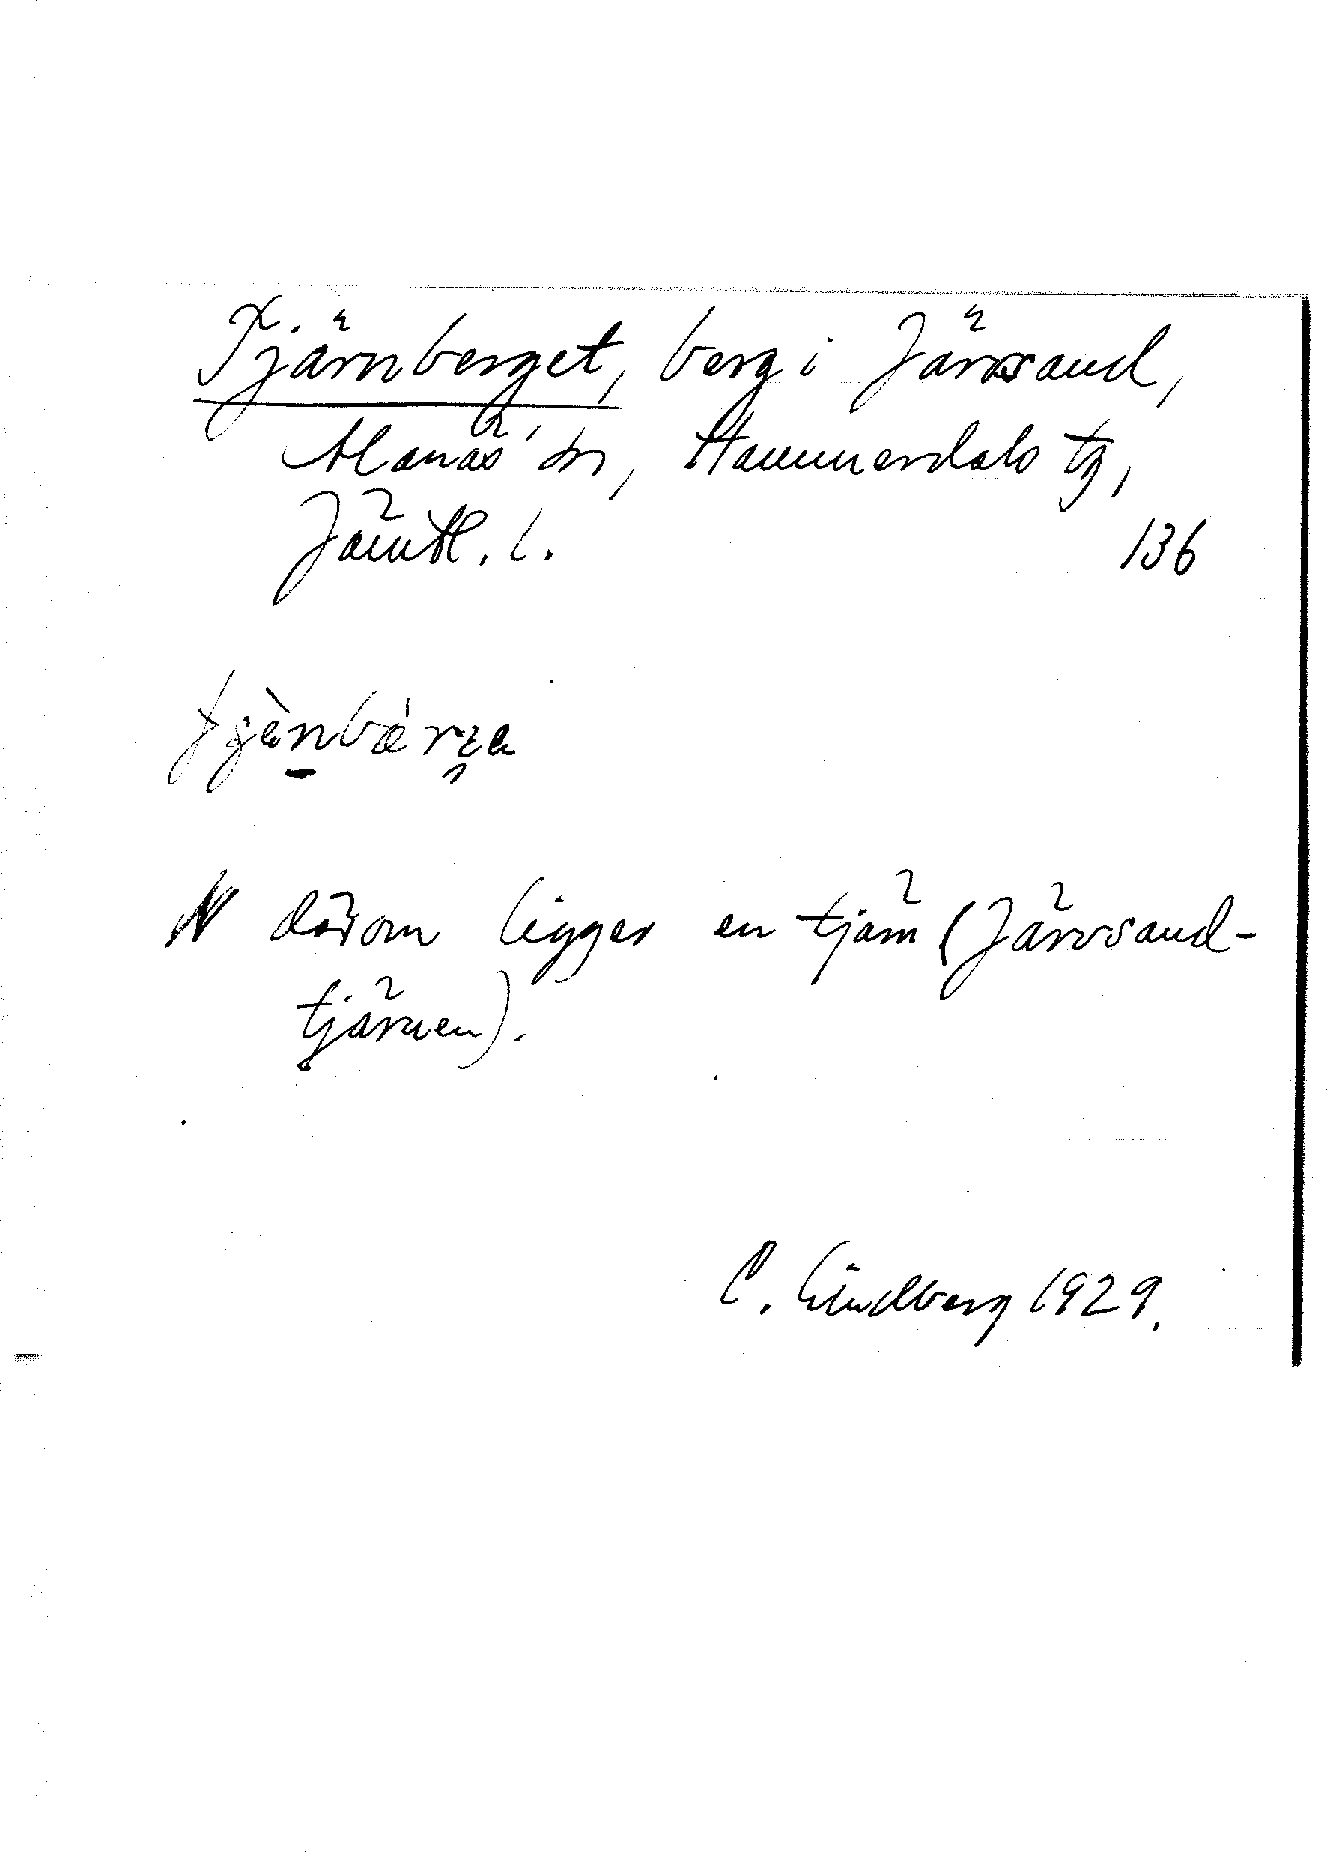 Tjärnberget, berg i Järvsand,
Alanäs sn, Hammerdals tg,
Jämtl. l.
136
N därom ligger en tjärn (Järvsand-
tjärnen).
C. Lindberg 1929.